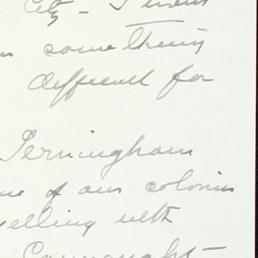 City - I went
on something
difficult for
Jerningham
one of our colonies
velling with
Connaught